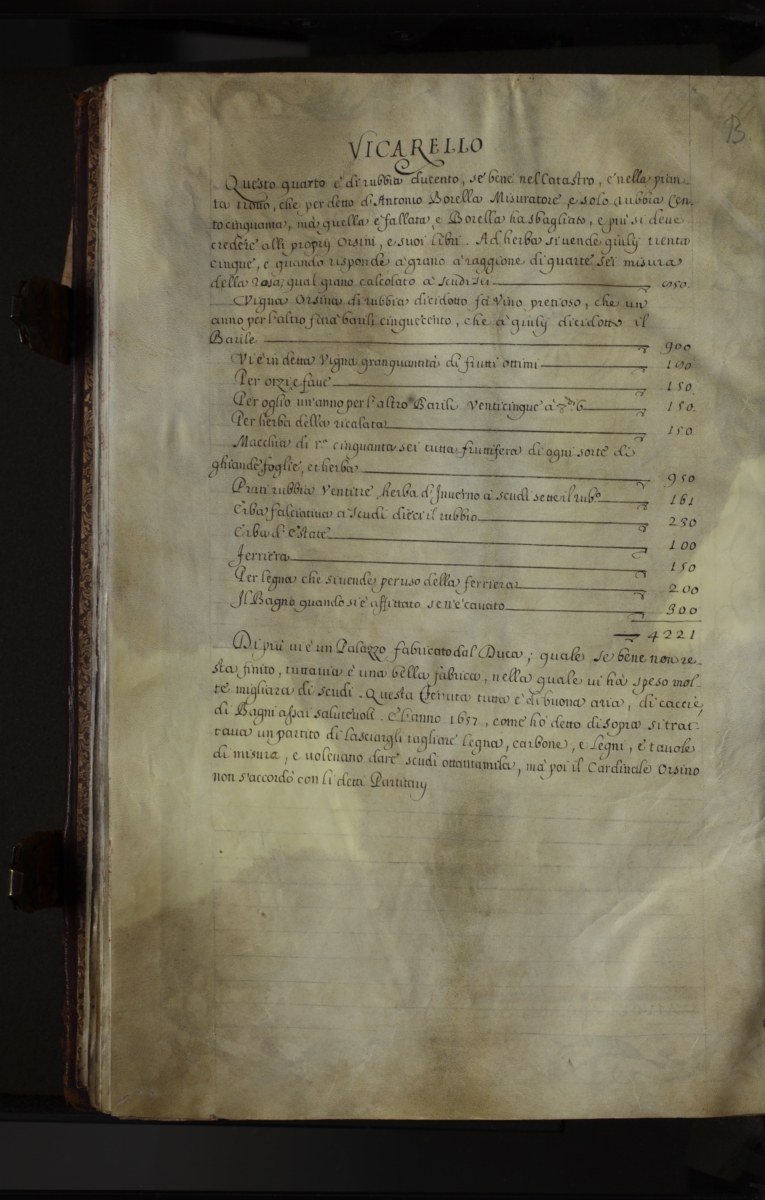 B.
VICARELLO
Questo quarto è di rubbia ducento, se bene nel Catastro, e nella pian-
ta trovo, che per detto di Antonio Borella Misuratore è solo rubbia Cen-
to cinquanta, mà quella è fallata, e Borella ha sbagliato, e più si deve
credere alli proprij Orsini, e suoi libri. Ad herba si vende giulij trenta
cinque, e quando risponde à grano à raggione di quarte sei misura
della rosa; qual grano calcolato à scudi sei
Vigna Orsina di rubbia dieidotto fà Vino pretioso, che un
anno per l'altro farà barili cinquecento, che à giulij dieidotto il
Barile 900
Vi è in detta Vigna gran quantità di frutti ottimi 100
Per orzi, e fave 150
Per oglio un'anno per l'altro Barili venticinque à 6 150.
Per herba della ricalata 150
Macchia di r.ª cinquanta sei tutta fruttifera di ogni sorte di
ghiande foglie, et herba 950
Prati rubbia ventitre herba d'Inverno à scudi sette il rub.º 161
Erba falciativa à scudi dieci il rubbio 230
Erba d'Estate 100
Ferriera 150
Per legna che si vende per uso della ferriera 200
Il Bagno quando si è affittato se n'è cavato 300
4221
Di più vi è un Palazzo fabricato dal Duca; quale se bene non re-
sta finito, tuttavia è una bella fabrica, nella quale vi hà speso mol-
te migliara di scudi. Questa Tenuta tutta è di buona aria, di caccie,
di Bagni assai salutevoli. E l'anno 1657, come hò detto di sopra si trat-
tava un partito di lasciargli tagliare legna, carbone, e legni, e tavole
di misura, e volevano dare scudi ottantamila, mà poi il Cardinale Orsino
non s'accordò con li detti Partitarij